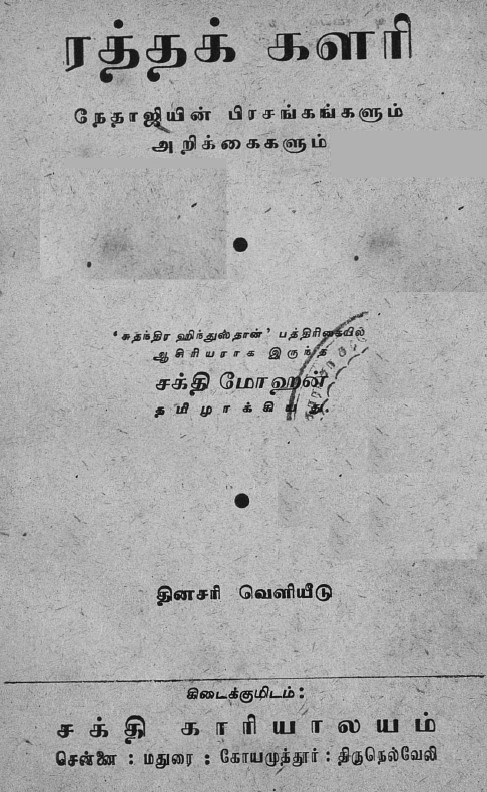 ரத்தக் களரி
நேதாஜியின் பிரசங்கங்களும்
அறிக்கைகளும்
‘சுதந்திர ஹிந்துஸ்தான்’ பத்திரிகையில்
ஆசிரியராக இருந்த
சக்தி மோஹன்
தமிழாக்கியது.
தினசரி வெளியீடு
கிடைக்குமிடம்:
சக்தி காரியாலயம்
சென்னை : மதுரை : கோயமுத்தூர் : திருநெல்வேலி